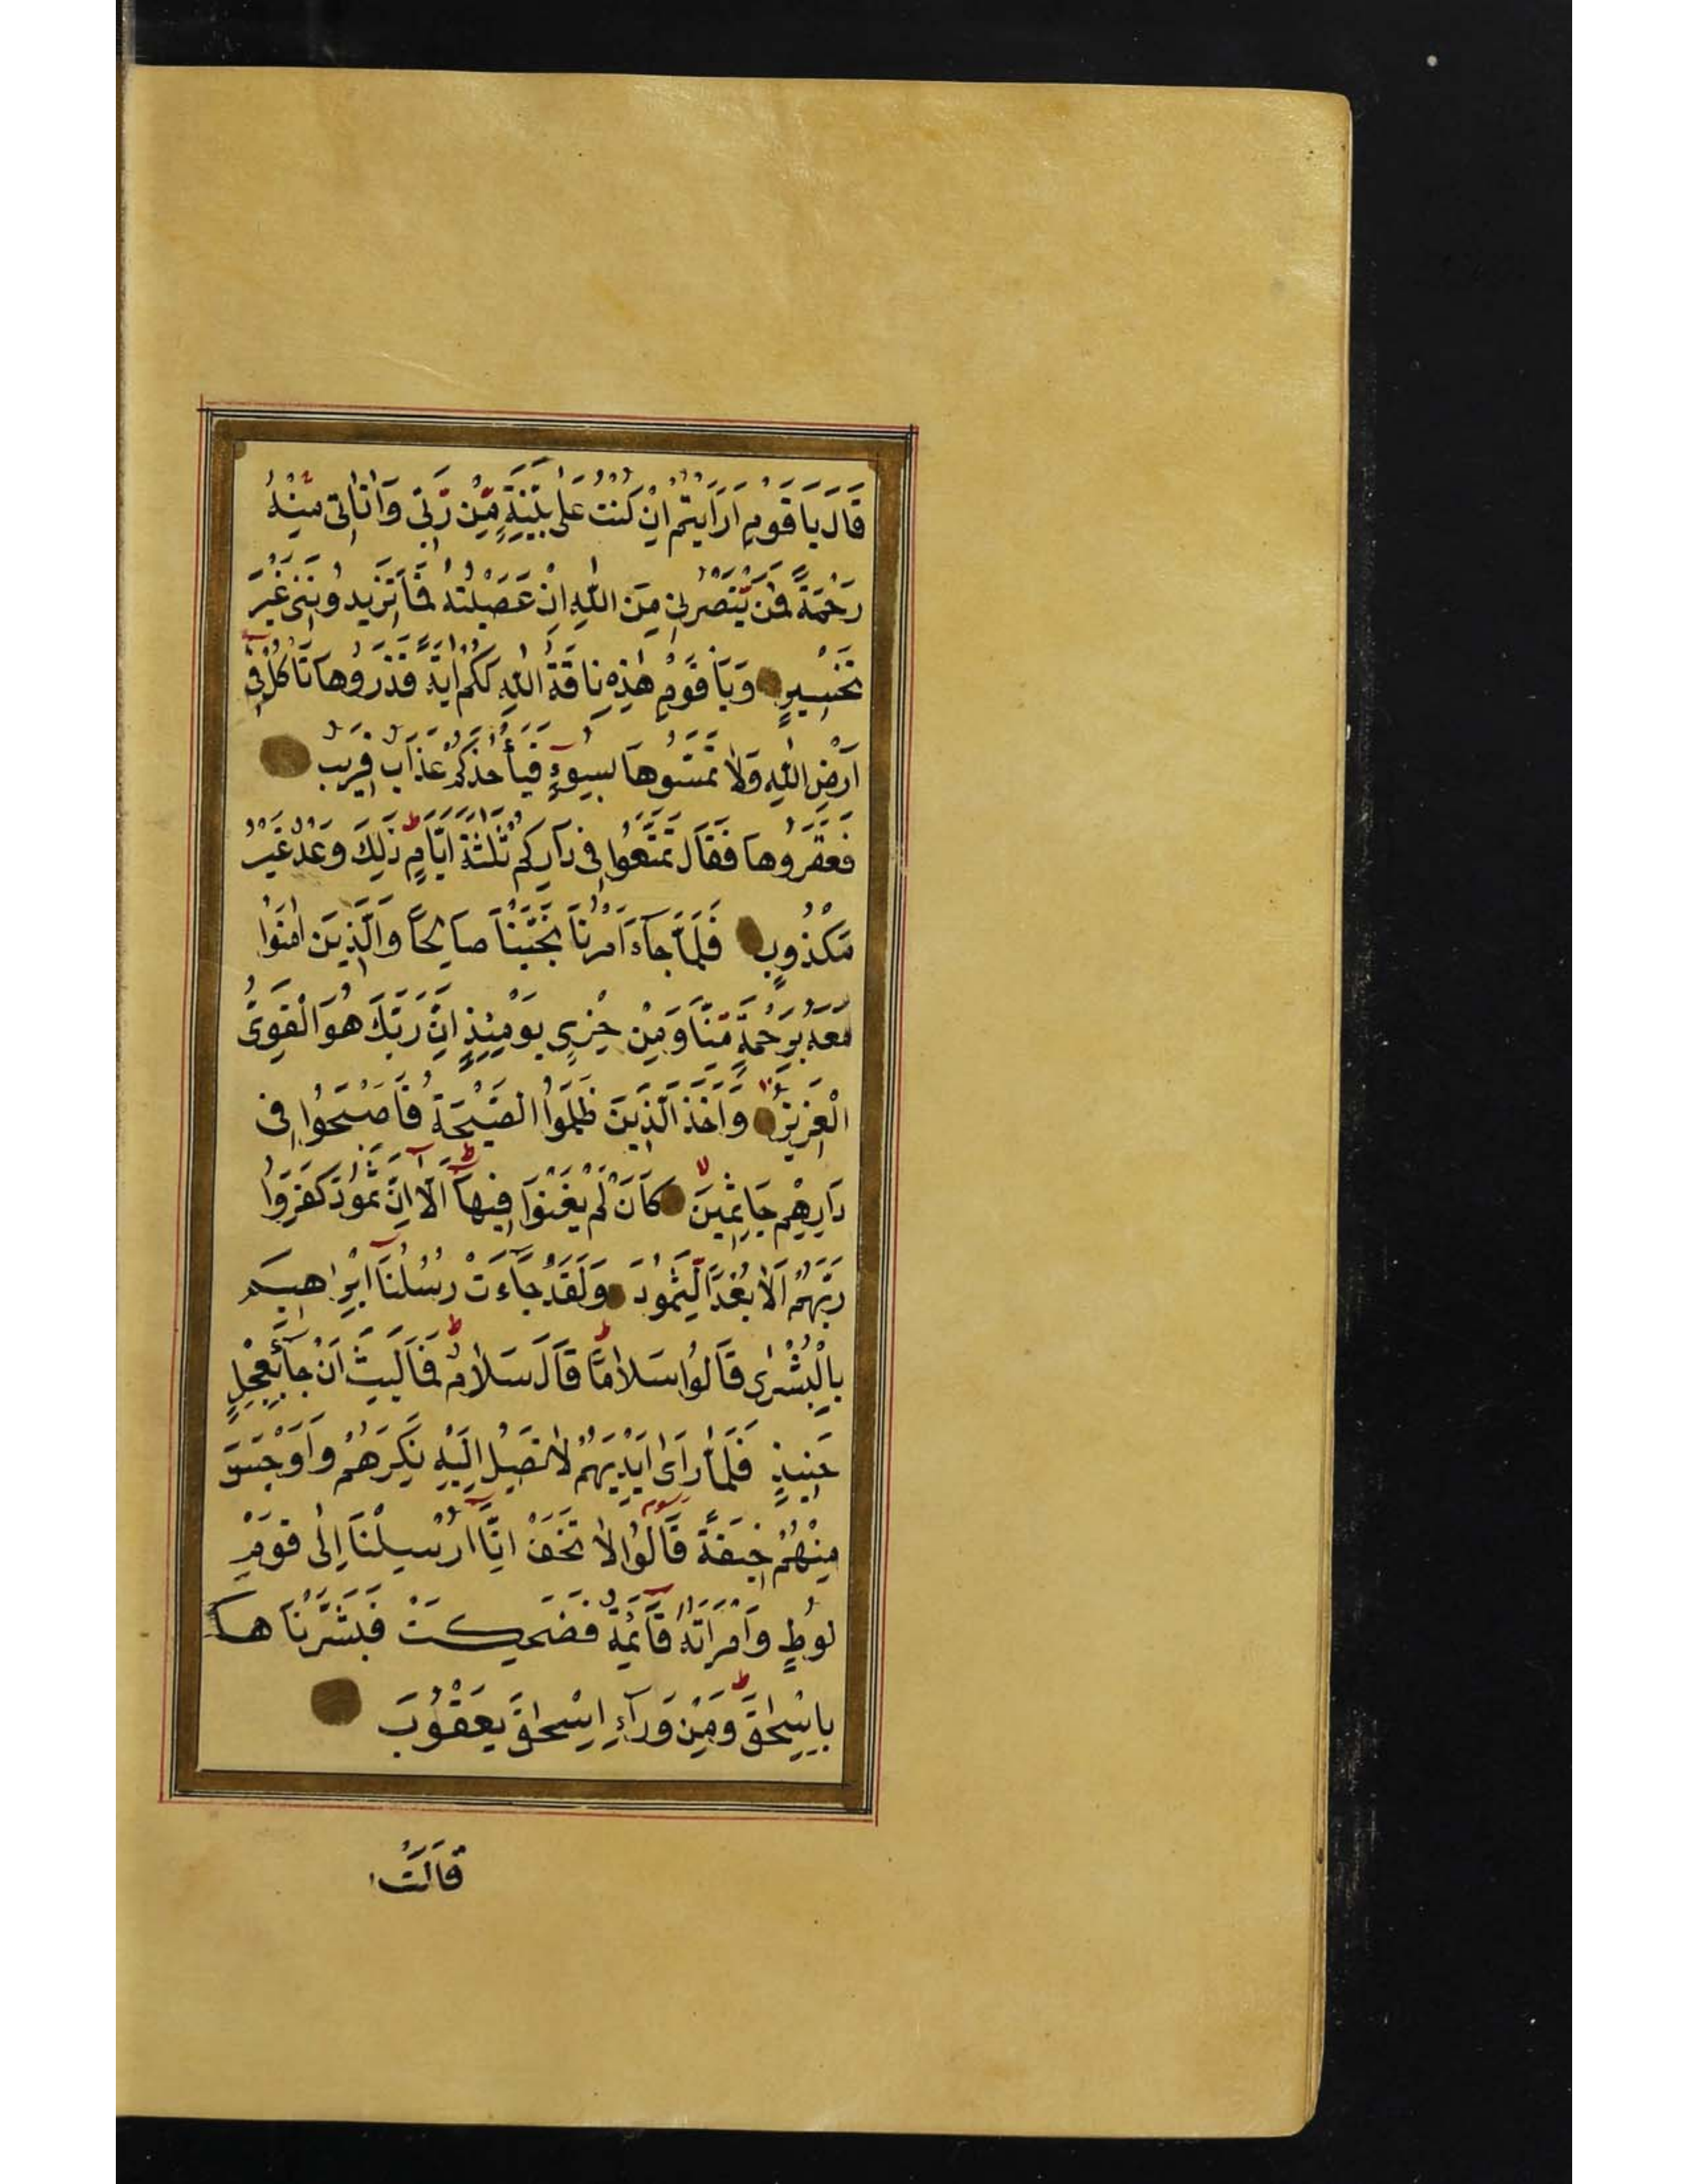 قَالَ يَا قَوْمِ اَرَاَيْتُمْ اِنْ كُنْتُ عَلٰى بَيِّنَةٍ مِّنْ رَّبّٖى وَاٰتَانٖى مِنْهُ
رَحْمَةً فَمَنْ يَّنْصُرُنٖى مِنَ اللّٰهِ اِنْ عَصَيْتُهُ فَمَا تَزٖيدُونَنٖى غَيْرَ
تَخْسٖيرٍ وَيَا قَوْمِ هٰذِهٖ نَاقَةُ اللّٰهِ لَكُمْ اٰيَةً فَذَرُوهَا تَاْكُلْ فٖى
اَرْضِ اللّٰهِ وَلَا تَمَسُّوهَا بِسُوٓءٍ فَيَأْخُذَكُمْ عَذَابٌ قَرٖيبٌ
فَعَقَرُوهَا فَقَالَ تَمَتَّعُوا فٖى دَارِكُمْ ثَلٰثَةَ اَيَّامٍ ذٰلِكَ وَعْدٌ غَيْرُ
مَكْذُوبٍ فَلَمَّا جَآءَ اَمْرُنَا نَجَّيْنَا صَالِحًا وَالَّذٖينَ اٰمَنُوا
مَعَهُ بِرَحْمَةٍ مِّنَّا وَمِنْ خِزْىِ يَوْمِئِذٍ اِنَّ رَبَّكَ هُوَ الْقَوِىُّ
الْعَزٖيزُ وَاَخَذَ الَّذٖينَ ظَلَمُوا الصَّيْحَةُ فَاَصْبَحُوا فٖى
دَارِهِمْ جَاثِمٖينَ كَاَنْ لَمْ يَغْنَوْا فٖيهَآ اَلَآ اِنَّ ثَمُودَ كَفَرُوا
رَبَّهُمْ اَلَا بُعْدًا لِّثَمُودَ وَلَقَدْ جَآءَتْ رُسُلُنَآ اِبْرٰاهٖيمَ
بِالْبُشْرٰى قَالُوا سَلَامًا قَالَ سَلَامٌ فَمَا لَبِثَ اَنْ جَآءَ بِعِجْلٍ
حَنٖيذٍ فَلَمَّا رَآٰ اَيْدِيَهُمْ لَا تَصِلُ اِلَيْهِ نَكِرَهُمْ وَاَوْجَسَ
مِنْهُمْ خٖيفَةً قَالُوا لَا تَخَفْ اِنَّآ اُرْسِلْنَآ اِلٰى قَوْمِ
لُوطٍ وَامْرَاَتُهُ قَآئِمَةٌ فَضَحِكَتْ فَبَشَّرْنَاهَا
بِاِسْحٰقَ وَمِنْ وَرَآءِ اِسْحٰقَ يَعْقُوبَ
قَالَتْ